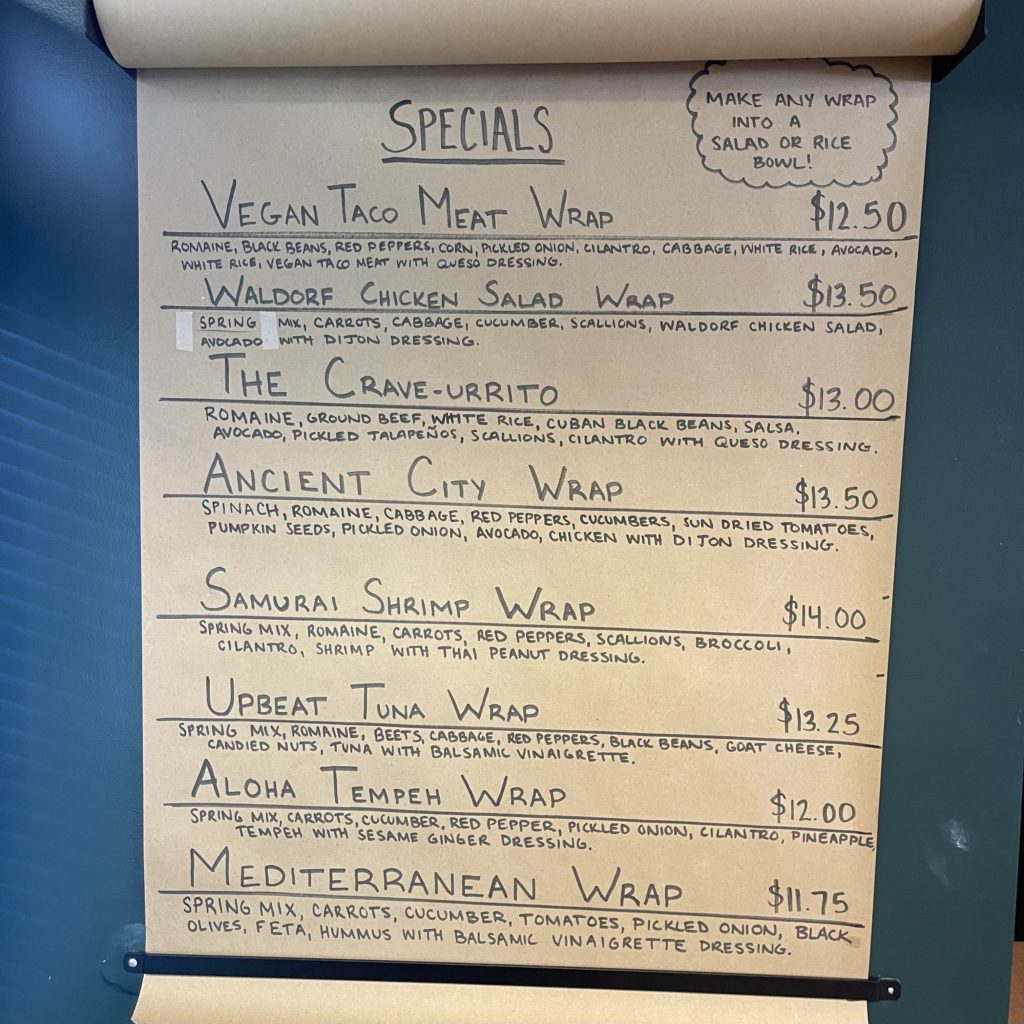 SPECIALS
MAKE ANY WRAP
INTO A
SALAD OR RICE
BOWL!
VEGAN TACO MEAT WRAP $12.50
ROMAINE, BLACK BEANS, RED PEPPERS, CORN, PICKLED ONION, CILANTRO, CABBAGE, WHITE RICE, AVOCADO,
WHITE RICE, VEGAN TACO MEAT WITH QUESO DRESSING.
WALDORF CHICKEN SALAD WRAP $13.50
SPRING MIX, CARROTS, CABBAGE, CUCUMBER, SCALLIONS, WALDORF CHICKEN SALAD,
AVOCADO WITH DIJON DRESSING.
THE CRAVE-URRITO $13.00
ROMAINE, GROUND BEEF, WHITE RICE, CUBAN BLACK BEANS, SALSA,
AVOCADO, PICKLED JALAPEÑOS, SCALLIONS, CILANTRO WITH QUESO DRESSING.
ANCIENT CITY WRAP $13.50
SPINACH, ROMAINE, CABBAGE, RED PEPPERS, CUCUMBERS, SUN DRIED TOMATOES,
PUMPKIN SEEDS, PICKLED ONION, AVOCADO, CHICKEN WITH DIJON DRESSING.
SAMURAI SHRIMP WRAP $14.00
SPRING MIX, ROMAINE, CARROTS, RED PEPPERS, SCALLIONS, BROCCOLI,
CILANTRO, SHRIMP WITH THAI PEANUT DRESSING.
UPBEAT TUNA WRAP $13.25
SPRING MIX, ROMAINE, BEETS, CABBAGE, RED PEPPERS, BLACK BEANS, GOAT CHEESE,
CANDIED NUTS, TUNA WITH BALSAMIC VINAIGRETTE.
ALOHA TEMPEH WRAP $12.00
SPRING MIX, CARROTS, CUCUMBER, RED PEPPER, PICKLED ONION, CILANTRO, PINEAPPLE,
TEMPEH WITH SESAME GINGER DRESSING.
MEDITERRANEAN WRAP $11.75
SPRING MIX, CARROTS, CUCUMBER, TOMATOES, PICKLED ONION, BLACK
OLIVES, FETA, HUMMUS WITH BALSAMIC VINAIGRETTE DRESSING.